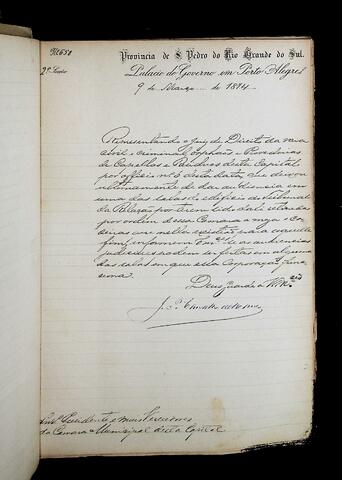 Nº 658
Provincia de S. Pedro do Rio Grande do Sul.
2ª Secção
Palacio do Governo em Porto Alegre
9 de Março de 1874
Representando o Juiz de Direito da vara
civel e criminal, orphãos e Provedoria
de Capellas e Residuos desta Capital
por officio nº 6 desta data, que deixou
ultimamente de dar audiencia em
uma das salas do edificio do Tribunal
da Relação por ter sido dali retirada
por ordem dessa Camara a mesa e ca-
deiras que nelle existião para aquelle
fim, informem Vmcês se as audiencias
judiciaes podem ser feitas em alguma
das salas em que essa Corporação func-
ciona.
Deus guarde a Vmcês
Snrs. Presidente e mais Vereadores
da Camara Municipal desta Capital